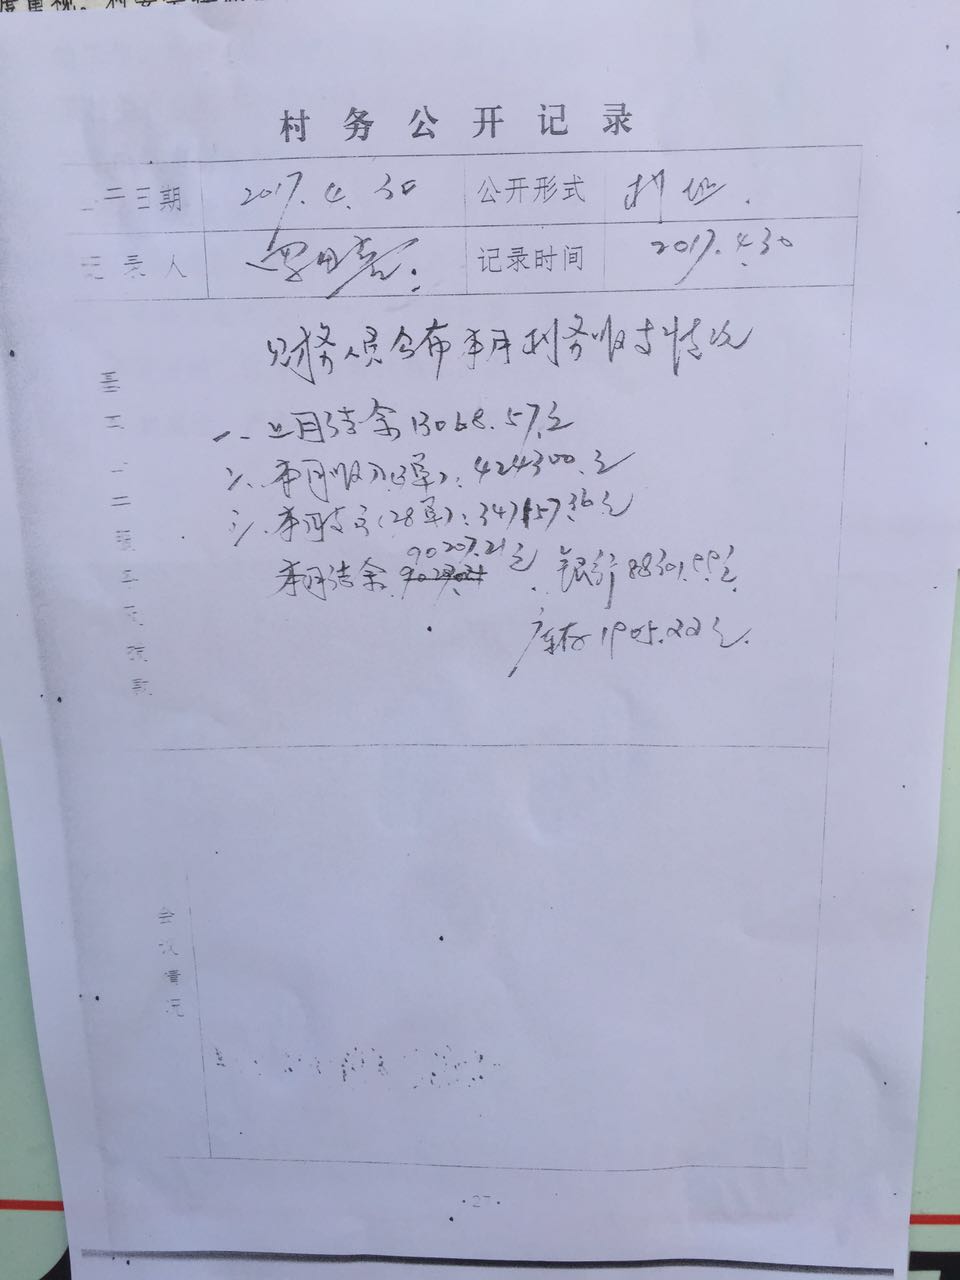 村务公开记录
期 2017.4.30 公开形式
记录人 记录时间 2017.4.30
财务人员公布本月财务收支情况
一、上月结余13068.57元
二、本月收入(3单):424300.元
三、本月支出(28单):347157.36元
本月结余 90207.21元. 银行88301.99元
库存1905.22元.
会议情况
·27·